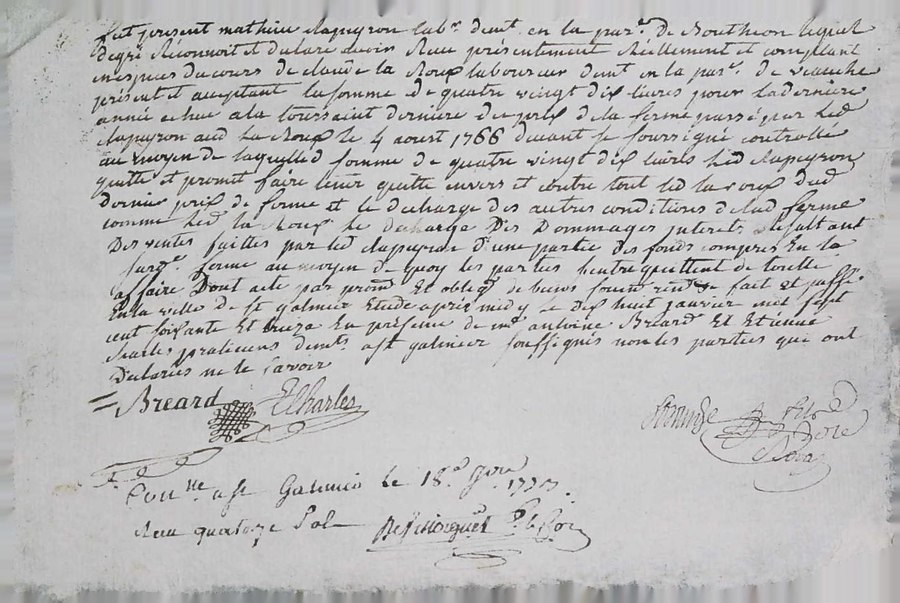 fut present mathieu Clapeyron lab.r demt. en la par.e de Rontheon lequel
degré Reconnoit et declare avoir Receu présentement Reellement et comptant
en especes du cours de claude la Roux laboureur demt en la par.e de veauche
présent et acceptant la somme de quatre vingt dix livres pour la derniere
année echue a la toussaint derniere du prix de la ferme passé par led
Clapeyron aud La Roux le 4 aoust 1766 devant le soussigné controllé
au moyen de laquelle d somme de quatre vingt dix livres led Clapeyron
quitte et promet faire tenir quitte envers et contre tout led la roux dud
dernier prix de ferme et le decharge des autres conditions de lad ferme
comme led la Roux le decharge Des Dommages interets Resultant
Des ventes faittes par led Clapeyron d'une partie des fonds compris En la
sard.e ferme au moyen de quoy les parties sentrequittent de toutte
affaire Dont acte par prom Et oblig de biens soum ren fait et passé
En la ville de st galmier Etude apres midy le Dix huit janvier mil sept
cent soixante Et treize En présence de m.e antoine Breard Et Etienne
Charles praticiens demts a st galmier soussignés non les parties que ont
Declarées ne le savoir
Breard ECharles
Con.lle a st Galmier le 18.e 1773.
Receu quatorze sols